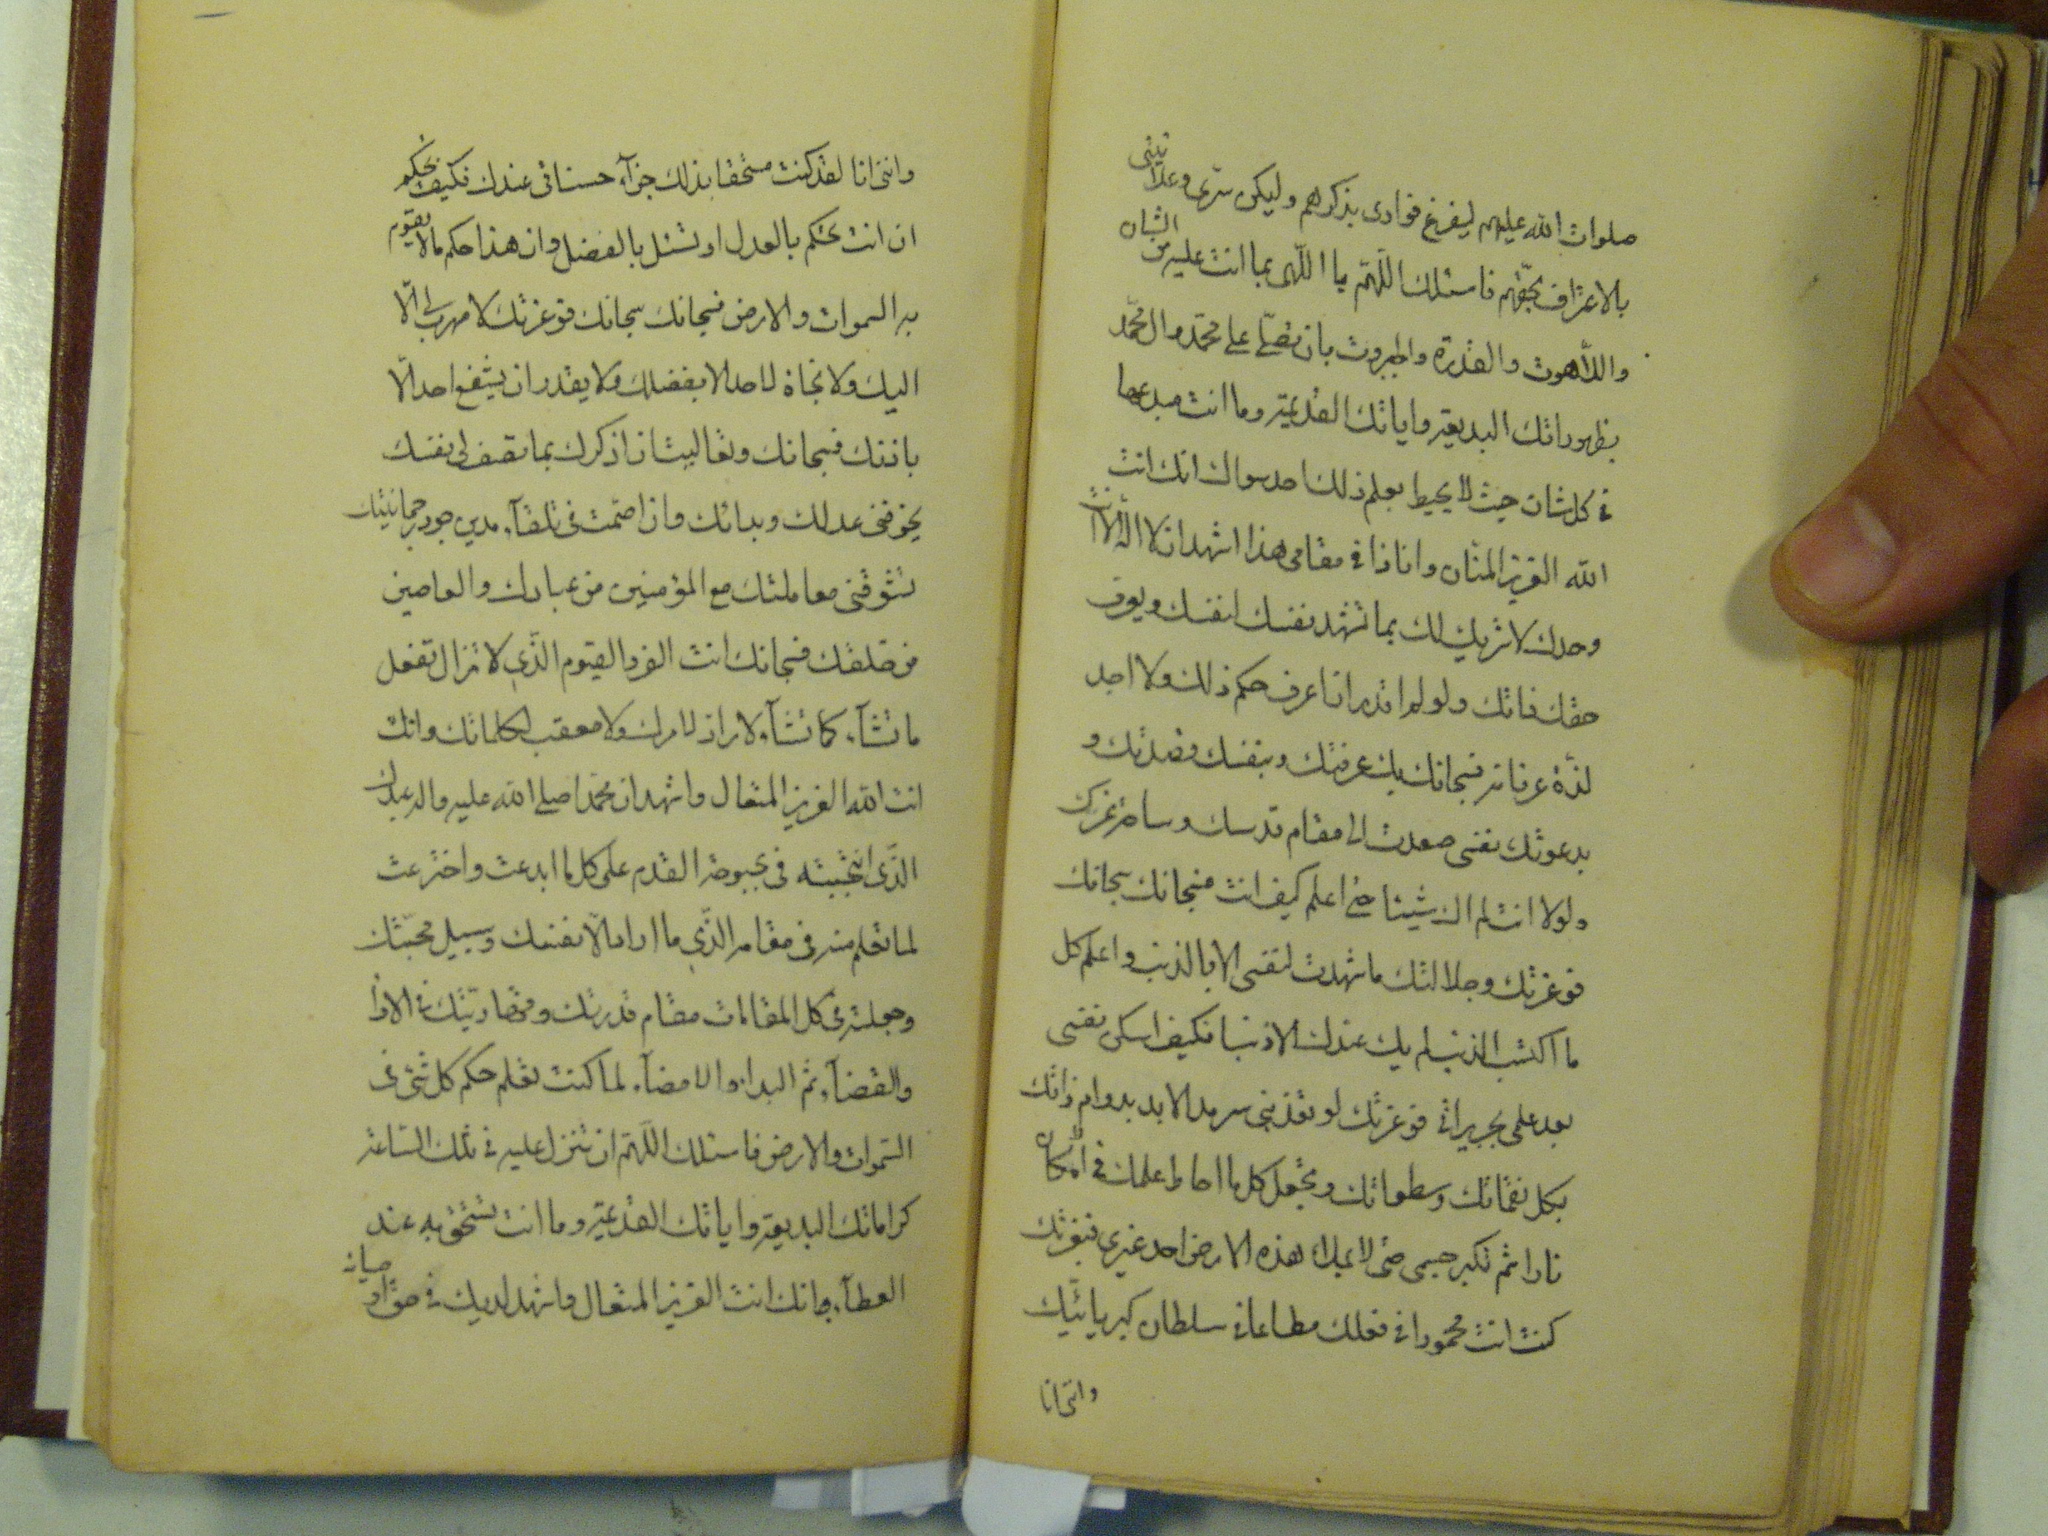 صلوات الله عليهم ليفرغ فوادى بذكرهم وليكن سرى وعلانيتى
بالاعتراف بحقهم فاسئلك اللهم يا الهى بما انت عليه من الشان
واللاهوت والقدرة والجبروت بان تصلى على محمد وال محمد
بظهوراتك البديعة واياتك القديمة وما انت مبدعها
فى كل شان حيث لا يحيط بعلم ذلك احد سواك انك انت
الله العزيز المنان وانا ذا فى مقامى هذا اشهد ان لا اله الا انت
وحدك لا شريك لك بما تشهد نفسك لنفسك ويعرف
حقك ذاتك ولو لم اقدر ان اعرف حكم ذلك ولا اجد
لذة عرفانه فسبحانك بك عرفتك وبنفسك وصدتك و
بدعوتك نفسى صعدت الى مقام قدسك وساحة عزك
ولولا انت لم اك شيئا حتى اعلم كيف انت فسبحانك سبحانك
فوعزتك وجلالتك ما شهدت لنفسى الا بالذنب واعلم كل
ما اكتسب الذنب لم يك عندك الا ذنبا فكيف اسكن نفسى
بعد علمى بجريراتى فوعزتك لو تعذبنى سرمد الابد بدوام ذاتك
بكل نقماتك وسطواتك وتجعل كل ما احاط علمك فى الامكان
نارا ثم تكبر جسمى حتى لا يملاء هذه الارض احد غيرى فبعزتك
كنت انت محمودا فى فعلك مطاعا فى سلطان كبريائيتك
واننى انا
واننى انا لقد كنت مستحقا بذلك جزآء حسناتى عندك فكيف تحكم
ان انت تحكم بالعدل او تسئل بالفضل وان هذا حكم ما لا يقوم
به السموات والارض فسبحانك سبحانك فوعزتك لا مهرب لى الا
اليك ولا نجاة لاحد الا بفضلك ولا يقدر ان يشفع احد الا
باذنك فسبحانك وتعاليت ان اذكرك بما تصف لى نفسك
يخوفنى عدلك وبدائك وان اصمت فى تلقآء مدين جود رحمانيتك
تشوقنى معاملتك مع المؤمنين من عبادك والعاصين
من خلقك فسبحانك انت الفرد القيوم الذى لا تزال تفعل
ما تشآء كما تشآء لا راد لامرك ولا معقب لكلماتك وانك
انت الله العزيز المتعال واشهد ان محمدا صلى الله عليه واله عبدك
الذى انتجبته فى بحبوحة القدم على كل ما ابدعت واخترعت
لما تعلم منه فى مقامه الذى ما اراد الا نفسك وسبيل محبتك
وجعلته فى كل المقامات مقام قدرتك وقهاريتك فى الاداء
والقضآء ثم البداء والامضآء لما كنت تعلم حكم كل شئ فى
السموات والارض فاسئلك اللهم ان تنزل عليه فى تلك الساعة
كراماتك البديعة واياتك القديمة وما انت تستحق به عند
العطآء وانك انت العزيز المتعال واشهد لديك فى حق اوصيائه